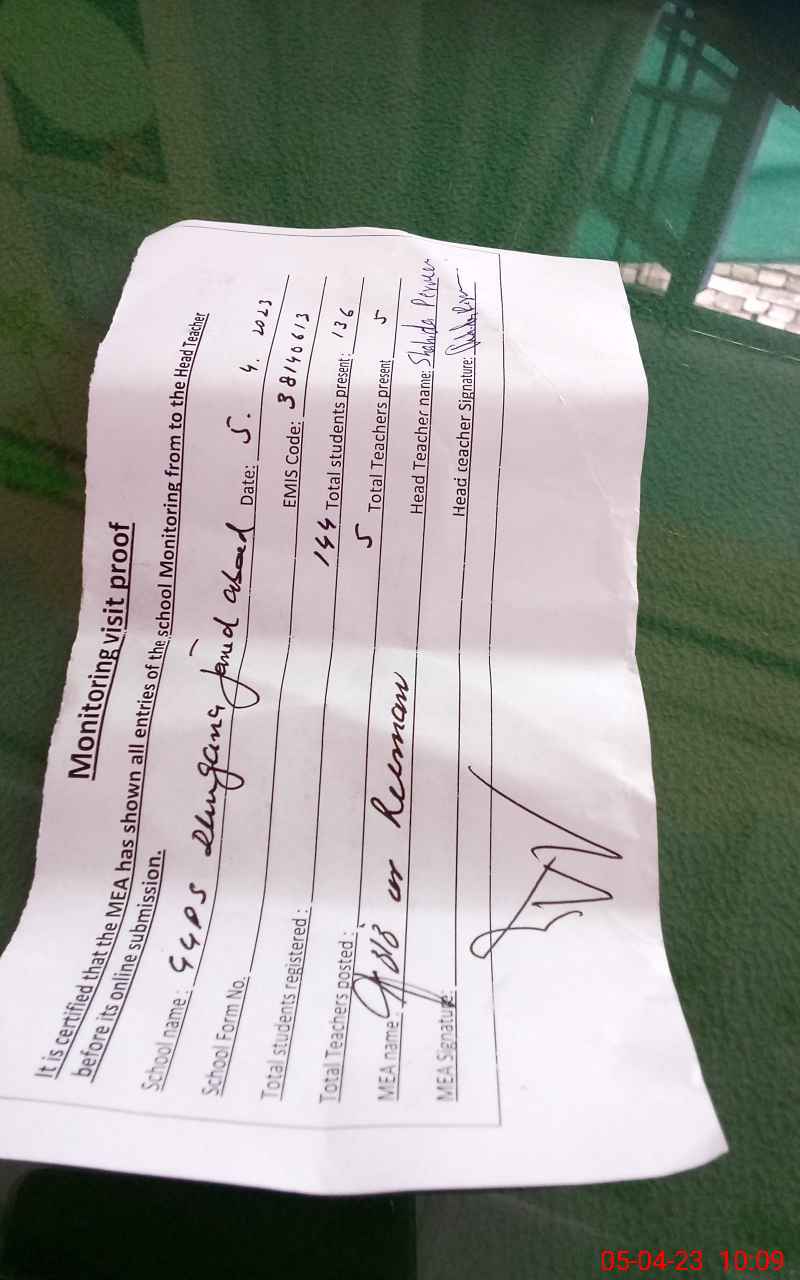 Monitoring visit proof
It is certified that the MEA has shown all entries of the school Monitoring from to the Head Teacher
before its online submission.
School name: GGPS Date: 5. 4. 2023
School Form No. EMIS Code: 38140613
Total students registered: 144 Total students present: 136
Total Teachers posted: 5 Total Teachers present 5
MEA name: ur Rehman Head Teacher name: Shahida Perveen
MEA Signature: Head teacher Signature:
05-04-23 10:09